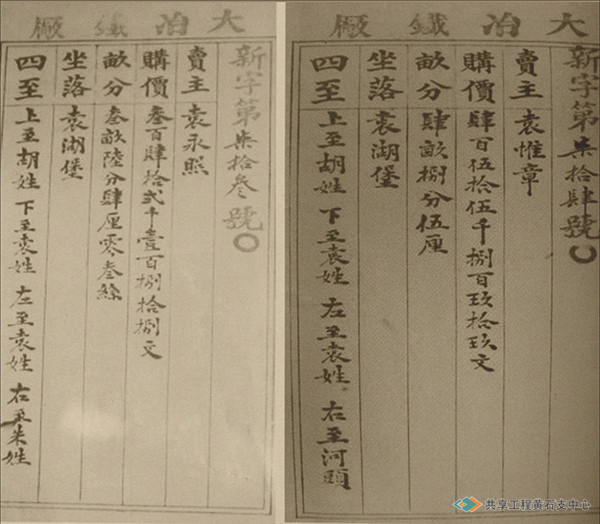 大冶鐵廠
新字第柒拾叁號○
賣主 袁永照
購價 叁百肆拾弍千壹百捌拾捌文
畝分 叁畝陸分肆厘零叁絲
坐落 袁湖堡
四至 上至胡姓 下至袁姓 左至袁姓 右至朱姓
大冶鐵廠
新字第柒拾肆號○
賣主 袁惟章
購價 肆百伍拾伍千捌百玖拾玖文
畝分 肆畝捌分伍厘
坐落 袁湖堡
四至 上至胡姓 下至袁姓 左至袁姓 右至河頭
共享工程黄石支中心